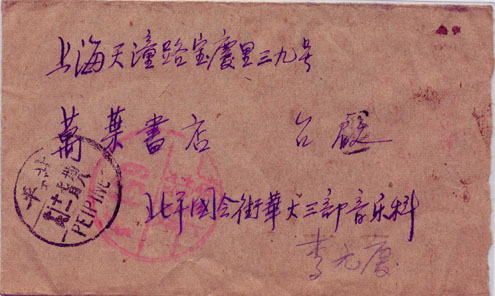 上海天潼路宝慶里三九号
萬葉書店 台啟
北平國会街華大三部音乐科
李元慶
北平
PEIPING